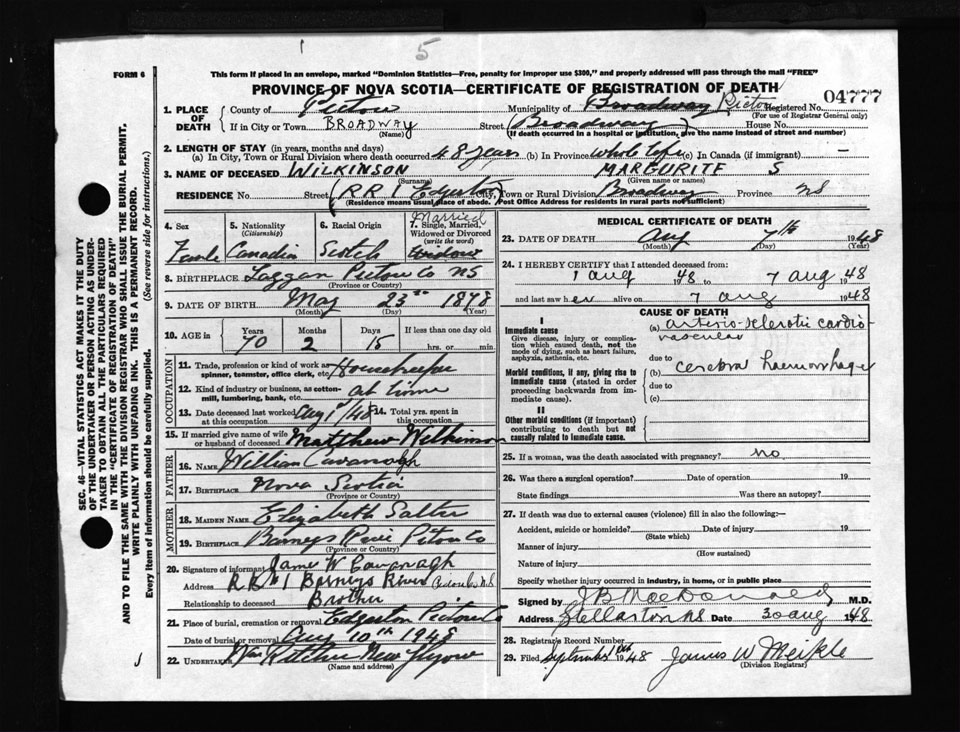 5
FORM 6
This form if placed in an envelope, marked "Dominion Statistics—Free, penalty for improper use $300," and properly addressed will pass through the mail "FREE"
PROVINCE OF NOVA SCOTIA—CERTIFICATE OF REGISTRATION OF DEATH
04777
1. PLACE OF DEATH
County of Pictou
Municipality of Broadway Pictou
Registered No.
(For use of Registrar General only)
If in City or Town BROADWAY (Name)
Street (Broadway) House No.
(If death occurred in a hospital or institution, give the name instead of street and number)
2. LENGTH OF STAY (in years, months and days)
(a) In City, Town or Rural Division where death occurred 48 years (b) In Province whole life (c) In Canada (if immigrant) —
3. NAME OF DECEASED WILKINSON (Surname) MARGURITE S (Given name or names)
RESIDENCE No. Street (RR 1 City, Town or Rural Division Broadway Province NS
(Residence means usual place of abode. Post Office Address for residents in rural parts not sufficient)
4. Sex
5. Nationality (Citizenship)
6. Racial Origin
7. Single, Married, Widowed or Divorced (write the word)
Married
Female Canadian Scotch Widow
8. BIRTHPLACE Laggan Pictou Co NS
(Province or Country)
9. DATE OF BIRTH May 23rd 1878
(Month) (Day) (Year)
10. AGE in Years Months Days If less than one day old
70 2 15 hrs. or min.
OCCUPATION
11. Trade, profession or kind of work as spinner, teamster, office clerk, etc. Housekeeper
12. Kind of industry or business, as cotton-mill, lumbering, bank, etc. at home
13. Date deceased last worked at this occupation Aug 1st/48 14. Total yrs. spent in this occupation
15. If married give name of wife or husband of deceased Matthew Wilkinson
FATHER
16. NAME William Cavanagh
17. BIRTHPLACE Nova Scotia
(Province or Country)
MOTHER
18. MAIDEN NAME Elizabeth Salter
19. BIRTHPLACE Barneys River Pictou Co
(Province or Country)
20. Signature of informant James W Cavanagh
Address RR#1 Barneys River Pictou Co N.S
Relationship to deceased Brother
21. Place of burial, cremation or removal Pictou Co
Date of burial or removal Aug 10th 1948
22. UNDERTAKER New Glasgow
(Name and address)
MEDICAL CERTIFICATE OF DEATH
23. DATE OF DEATH Aug 7th 1948
(Month) (Day) (Year)
24. I HEREBY CERTIFY that I attended deceased from:
1 aug 1948 to 7 aug 1948
and last saw her alive on 7 aug 1948
CAUSE OF DEATH
I
Immediate cause
Give disease, injury or complication which caused death, not the mode of dying, such as heart failure, asphyxia, asthenia, etc.
(a) arterio-sclerotic cardio-vascular
due to
Morbid conditions, if any, giving rise to immediate cause (stated in order proceeding backwards from immediate cause).
(b) cerebral haemorrhage
due to
(c)
II
Other morbid conditions (if important) contributing to death but not causally related to immediate cause.
25. If a woman, was the death associated with pregnancy? no
26. Was there a surgical operation? Date of operation 19
State findings Was there an autopsy?
27. If death was due to external causes (violence) fill in also the following:—
Accident, suicide or homicide? Date of injury 19
(State which)
Manner of injury
(How sustained)
Nature of injury
Specify whether injury occurred in industry, in home, or in public place
Signed by J B MacDonald M.D.
Address Stellarton NS Date 30 aug 1948
28. Registrar's Record Number
29. Filed September 1948 James W Meikle
(Division Registrar)
SEC. 46—VITAL STATISTICS ACT MAKES IT THE DUTY
OF THE UNDERTAKER OR PERSON ACTING AS UNDER-
TAKER TO OBTAIN ALL THE PARTICULARS REQUIRED
IN THE "CERTIFICATE OF REGISTRATION OF DEATH"
AND TO FILE THE SAME WITH THE DIVISION REGISTRAR WHO SHALL ISSUE THE BURIAL PERMIT.
WRITE PLAINLY WITH UNFADING INK. THIS IS A PERMANENT RECORD.
Every item of information should be carefully supplied. (See reverse side for instructions.)